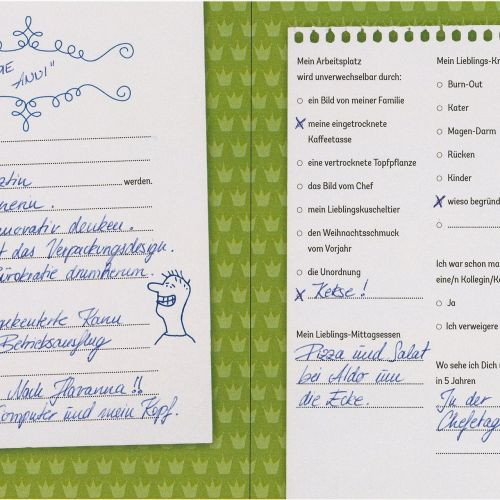 ANNI"
werden.
innovativ denken.
das Verpackungsdesign.
Bürokratie drumherum.
gekenterte Kanu
Betriebsausflug
Nach Havanna!!
Computer und mein Kopf.
Mein Arbeitsplatz
wird unverwechselbar durch:
ein Bild von meiner Familie
meine eingetrocknete
Kaffeetasse
eine vertrocknete Topfpflanze
das Bild vom Chef
mein Lieblingskuscheltier
den Weihnachtsschmuck
vom Vorjahr
die Unordnung
Kekse!
Mein Lieblings-Mittagsessen
Pizza und Salat
bei Aldo um
die Ecke.
Mein Lieblings-Kr
Burn-Out
Kater
Magen-Darm
Rücken
Kinder
wieso begründ
Ich war schon ma
eine/n Kollegin/Ko
Ja
Ich verweigere
Wo sehe ich Dich i
in 5 Jahren
In der
Chefetag